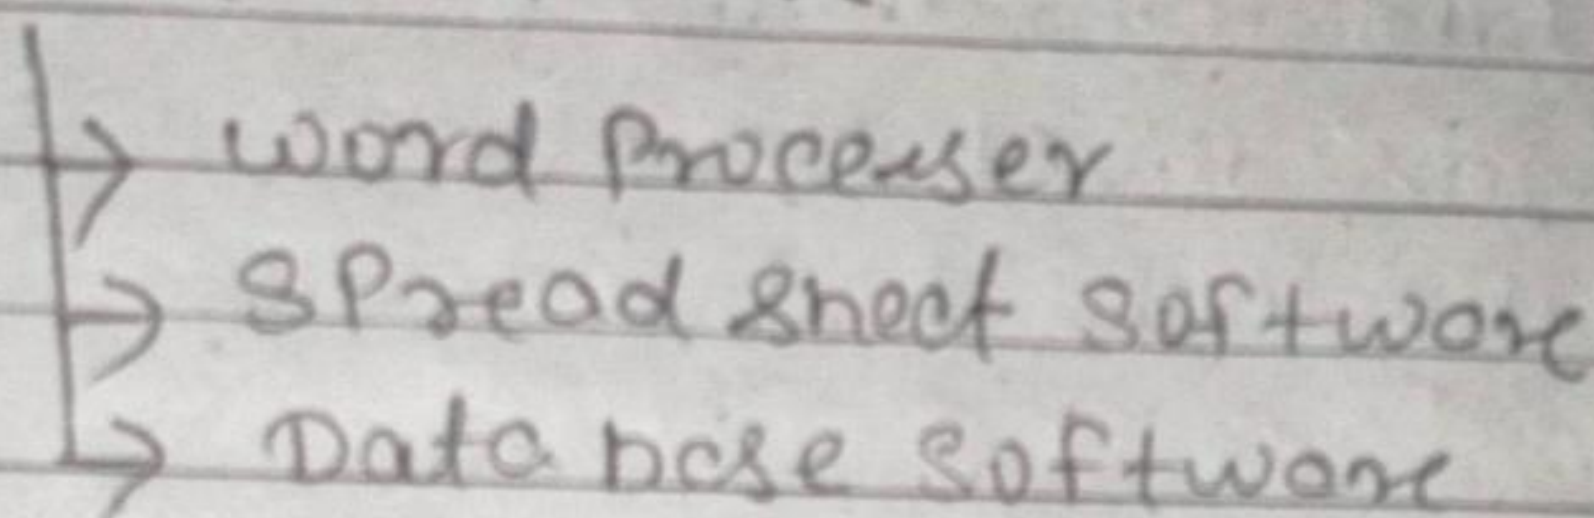 → word Processer
→ Spread sheet software
→ Data base software